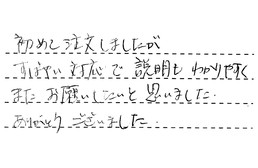 初めて注文しましたが
すばやい対応で説明もわかりやすく
またお願いしたいと思いました.
ありがとうございました.